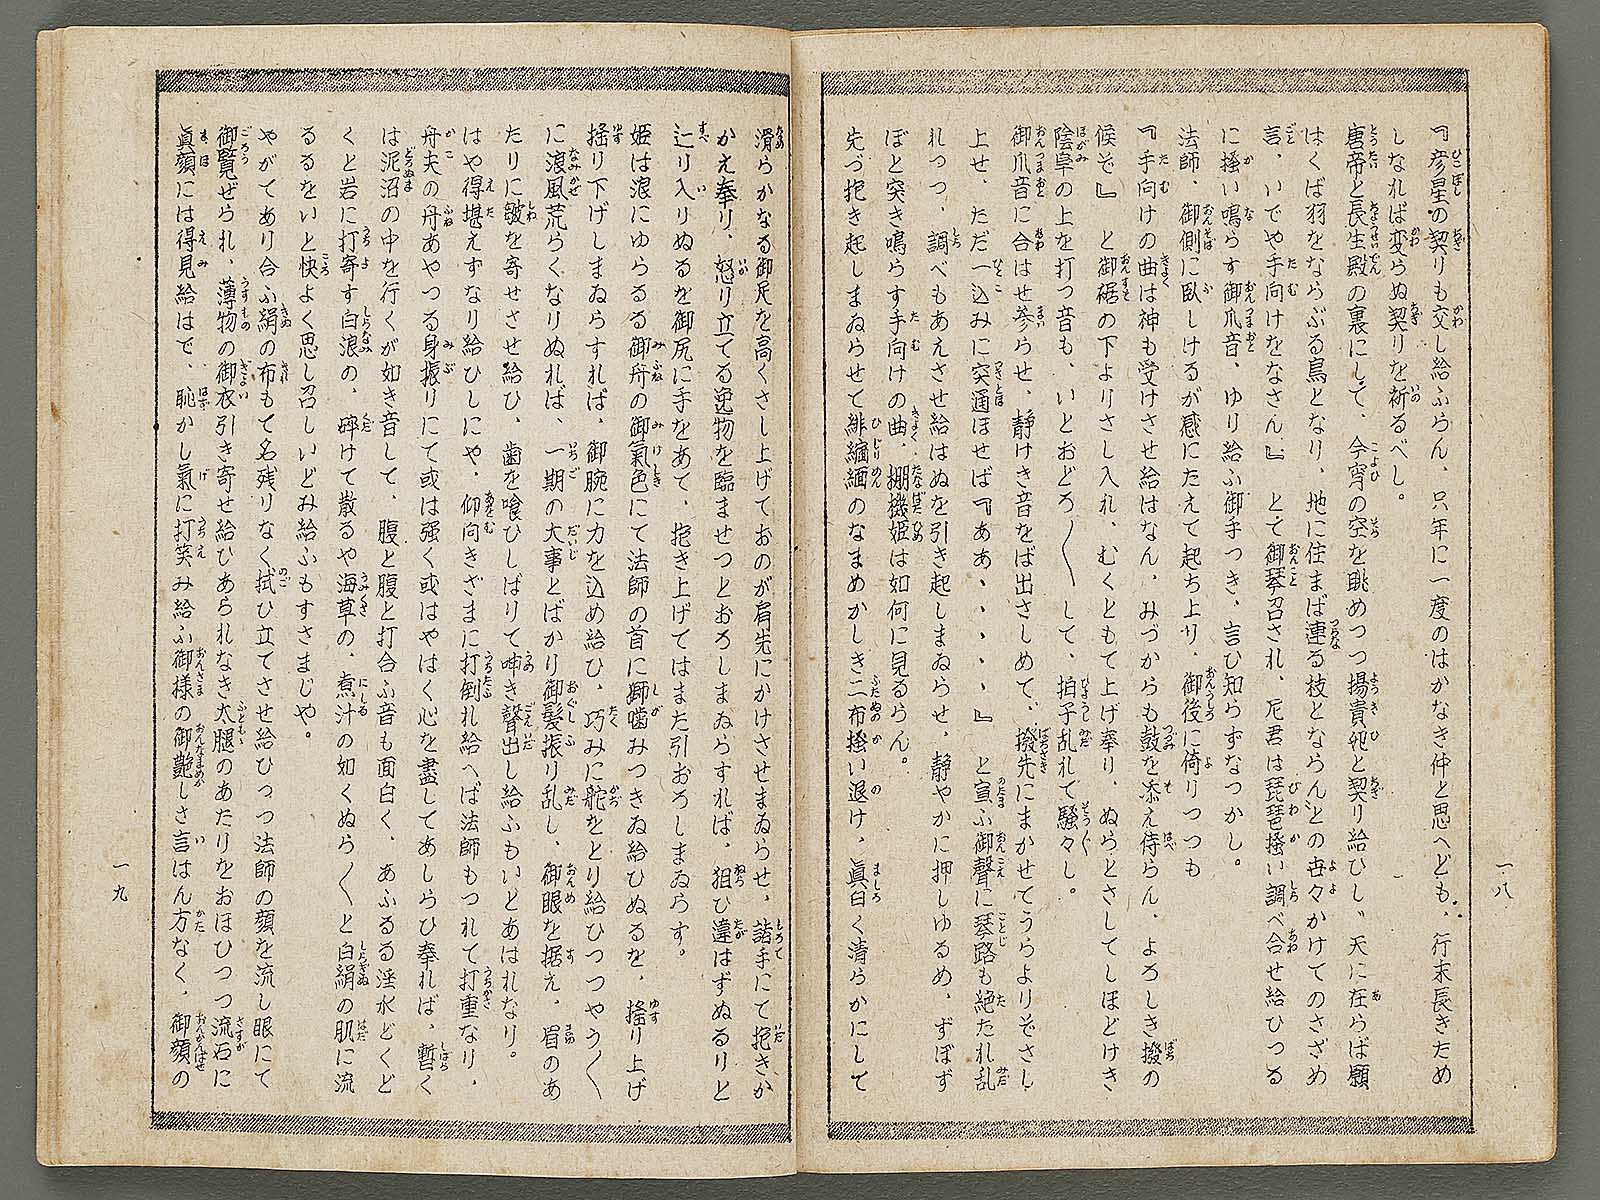 『彦星の契りも交し給ふらん、只年に一度のはかなき仲と思へども、行末長きため
しなれば変らぬ契りを祈るべし。
唐帝と長生殿の裏にして、今宵の空を眺めつつ揚貴妃と契り給ひし〝天に在らば願
はくば羽をならぶる鳥となり、地に住まば連る枝とならん〟との世々かけてのさざめ
言、いでや手向けをなさん。』 とて御琴召され、尼君は琵琶搔い調べ合せ給ひつる
に搔い鳴らす御爪音、ゆり給ふ御手つき、言ひ知らずなつかし。
法師、御側に臥しけるが感にたえて起ち上り、御後に倚りつつも
『手向けの曲は神も受けさせ給はなん、みづからも鼓を添え侍らん、よろしき撥の
候ぞ』 と御裾の下よりさし入れ、むくともて上げ奉り、ぬらとさしてしほどけき
陰阜の上を打つ音も、いとおどろ〳〵して、拍子乱れて騒々し。
御爪音に合はせ參らせ、静けき音をば出さしめて、撥先にまかせてうらよりぞさし
上せ、ただ一込みに突通ほせば『ああ、、、、、』 と宣ふ御聲に琴路も絶たれ乱
れつつ、調べもあえさせ給はぬを引き起しまゐらせ、静やかに押しゆるめ、ずぼず
ぼと突き鳴らす手向けの曲、棚機姫は如何に見るらん。
先づ抱き起しまゐらせて緋縮緬のなまめかしき二布搔い退け、眞白く清らかにして
一八
滑らかなる御足を高くさし上げておのが肩先にかけさせまゐらせ、諸手にて抱きか
かえ奉り、怒り立てる逸物を臨ませつとおろしまゐらすれば、狙ひ違はずぬるりと
辷り入りぬるを御尻に手をあて、抱き上げてはまた引おろしまゐらす。
姫は浪にゆらるる御舟の御氣色にて法師の首に獅噛みつきゐ給ひぬるを、搖り上げ
搖り下げしまゐらすれば、御腕に力を込め給ひ、巧みに舵をとり給ひつつやう〳〵
に浪風荒らくなりぬれば、一期の大事とばかり御髪振り乱し、御眼を据え、眉のあ
たりに皺を寄せさせ給ひ、歯を喰ひしばりて呻き聲出し給ふもいとあはれなり。
はや得堪えずなり給ひしにや、仰向きざまに打倒れ給へば法師もつれて打重なり、
舟夫の舟あやつる身振りにて或は强く或はやはく心を盡してあしらひ奉れば、暫く
は泥沼の中を行くが如き音して、腹と腹と打合ふ音も面白く、あふるる淫水どくど
くと岩に打寄す白浪の、碎けて散るや海草の、煮汁の如くぬら〳〵と白絹の肌に流
るるをいと快よく思し召しいどみ給ふもすさまじや。
やがてあり合ふ絹の布もて名残りなく拭ひ立てさせ給ひつつ法師の顔を流し眼にて
御覧ぜられ、薄物の御衣引き寄せ給ひあられなき太腿のあたりをおほひつつ流石に
眞顔には得見給はで、恥かし氣に打笑み給ふ御様の御艶しさ言はん方なく、御顔の
一九